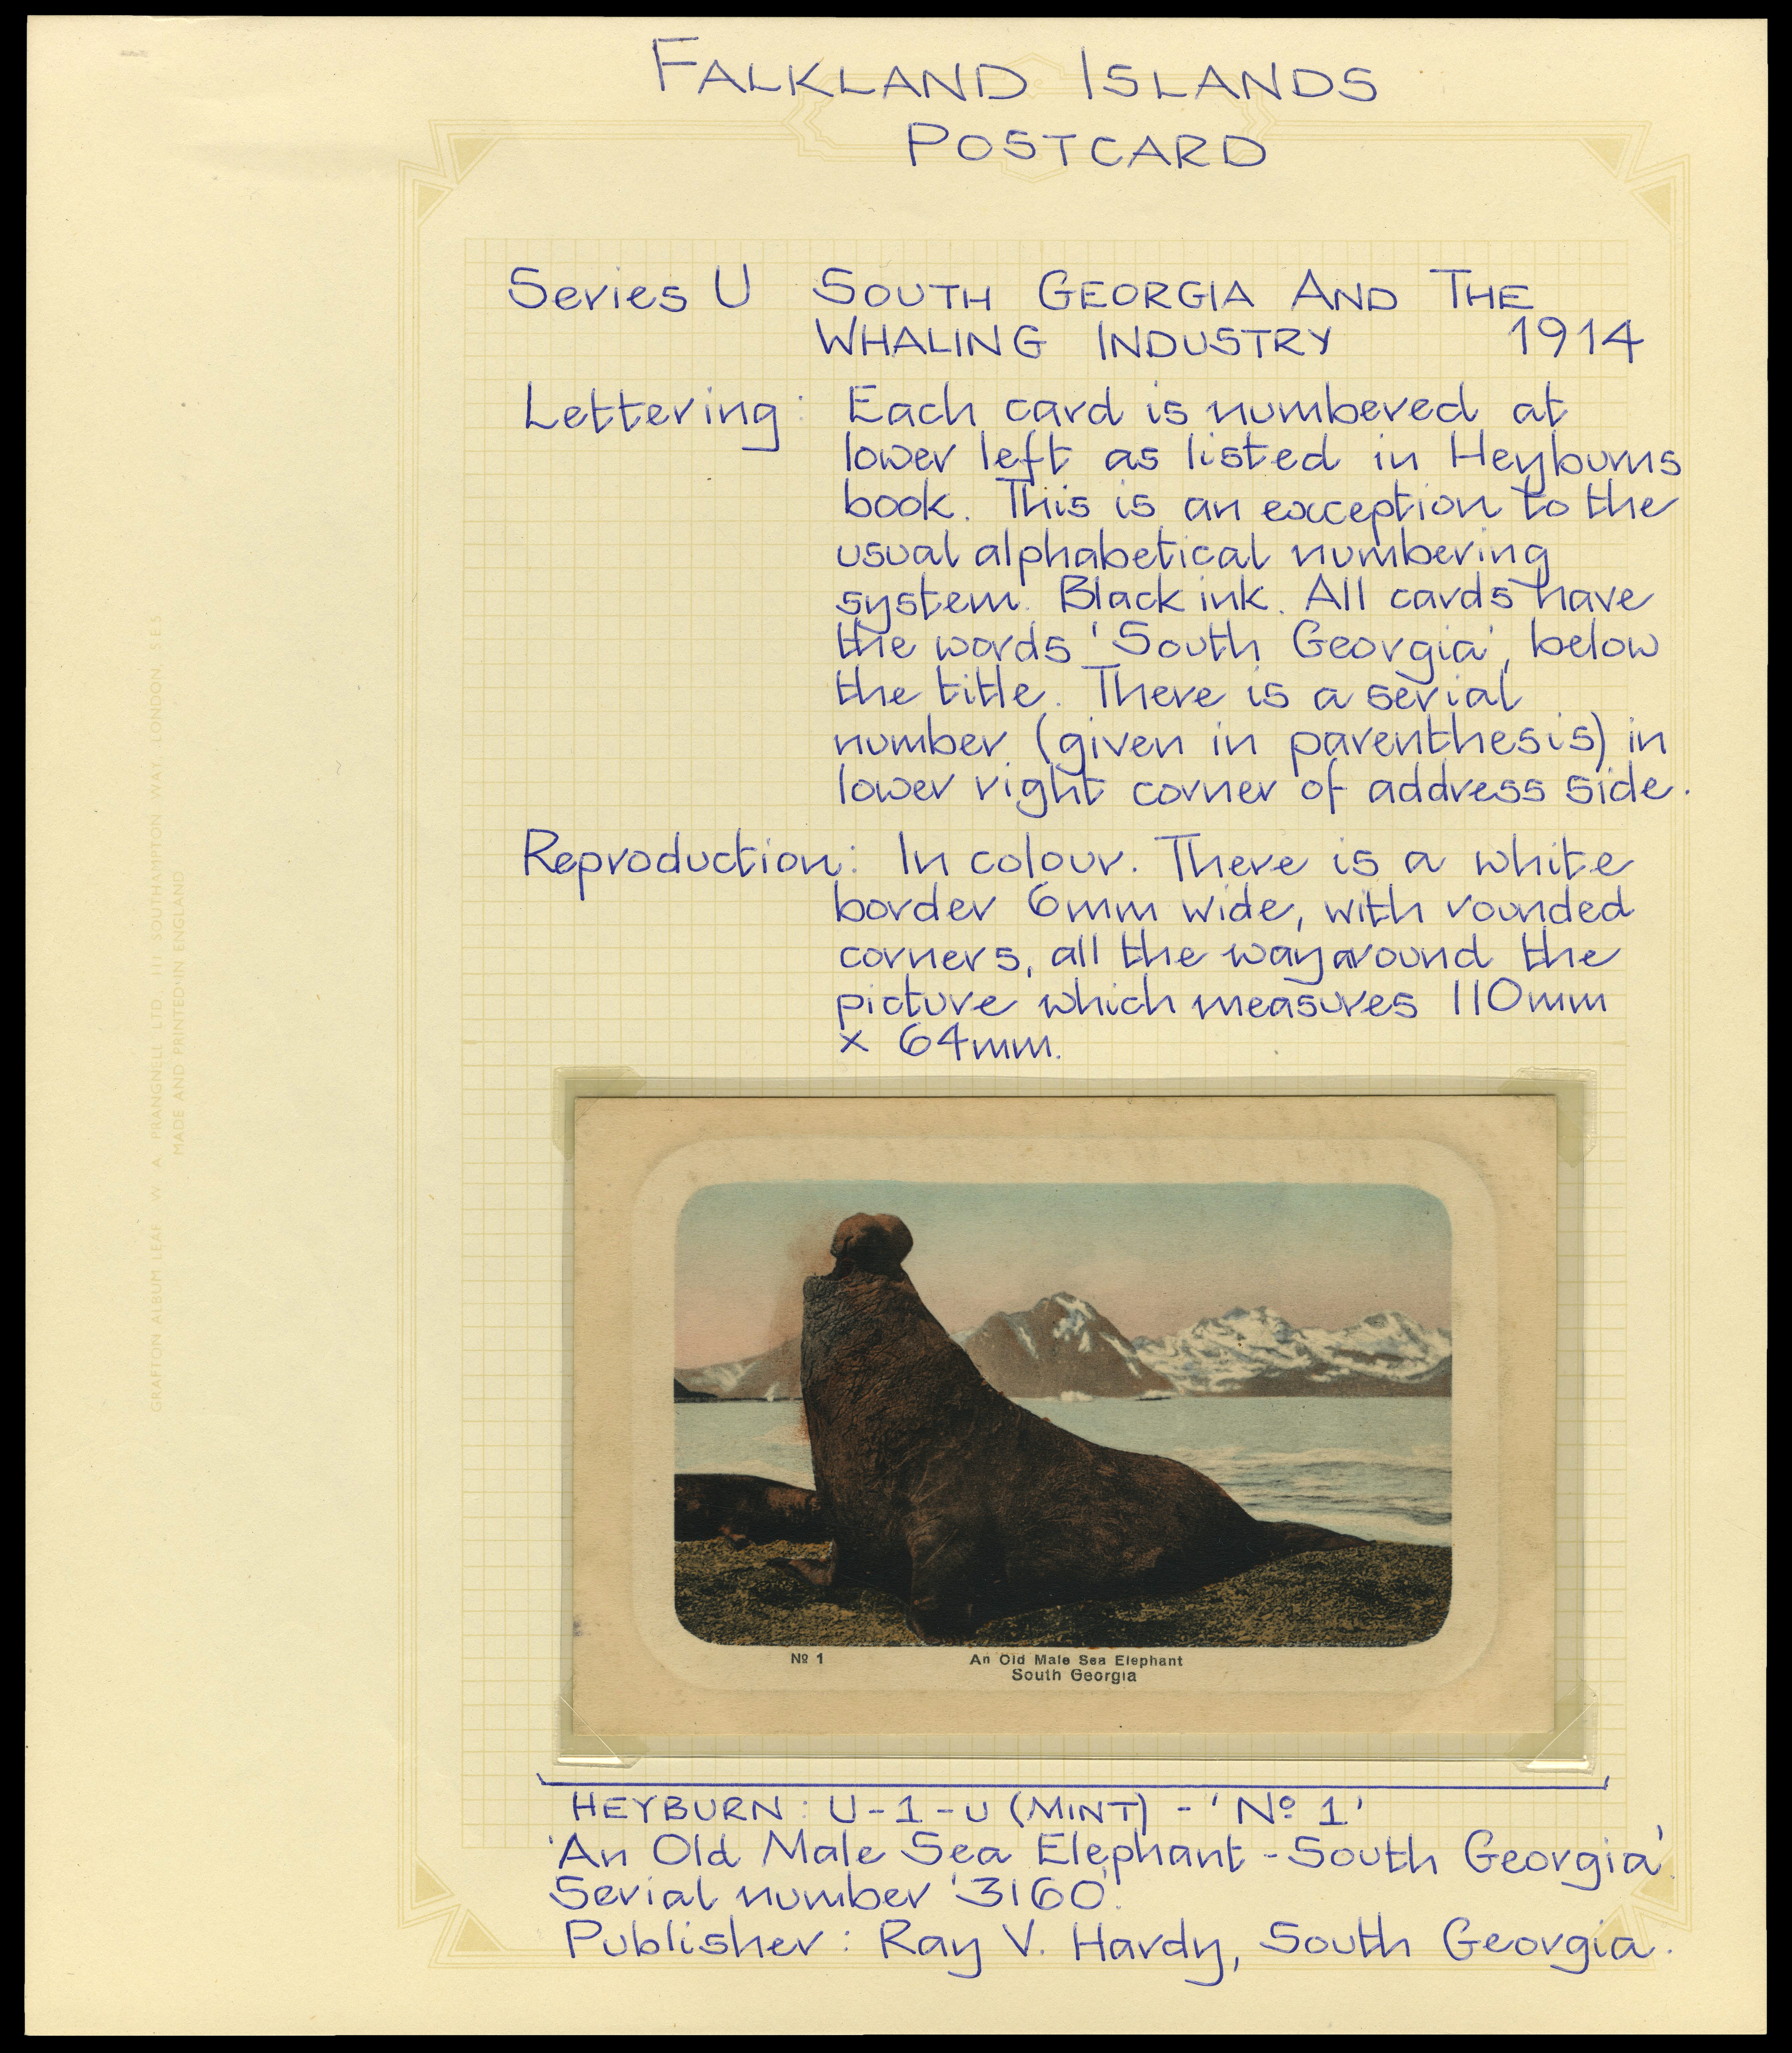 FALKLAND ISLANDS
POSTCARD
Series U SOUTH GEORGIA AND THE
WHALING INDUSTRY 1914
Lettering: Each card is numbered at
lower left as listed in Heyburns
book. This is an exception to the
usual alphabetical numbering
system. Black ink. All cards have
the words 'South Georgia', below
the title. There is a serial
number (given in parenthesis) in
lower right corner of address side.
Reproduction: In colour. There is a white
border 6mm wide, with rounded
corners, all the way around the
picture which measures 110mm
x 64mm.
№ 1 An Old Male Sea Elephant
South Georgia
HEYBURN: U-1-u (MINT) - 'Nº 1'
'An Old Male Sea Elephant - South Georgia'.
Serial number '3160'.
Publisher: Ray V. Hardy, South Georgia.
GRAFTON ALBUM LEAF W A PRANGNELL LTD, 11, SOUTHAMPTON WAY, LONDON S E 5
MADE AND PRINTED IN ENGLAND